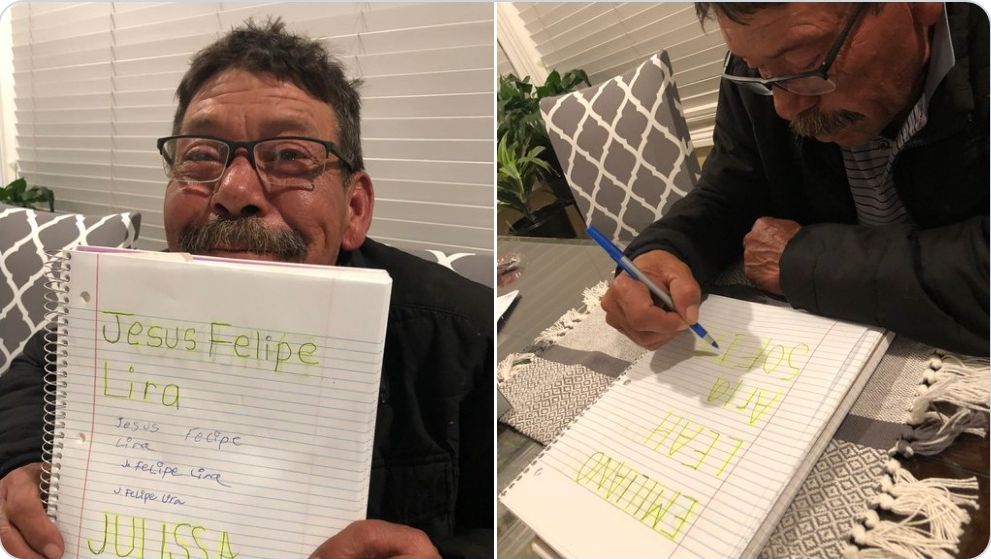 Jesus Felipe
Lira
Jesus Felipe
Lira
J. Felipe Lira
J. Felipe Lira
JULISSA
EMILIANO
LEAH
Aria